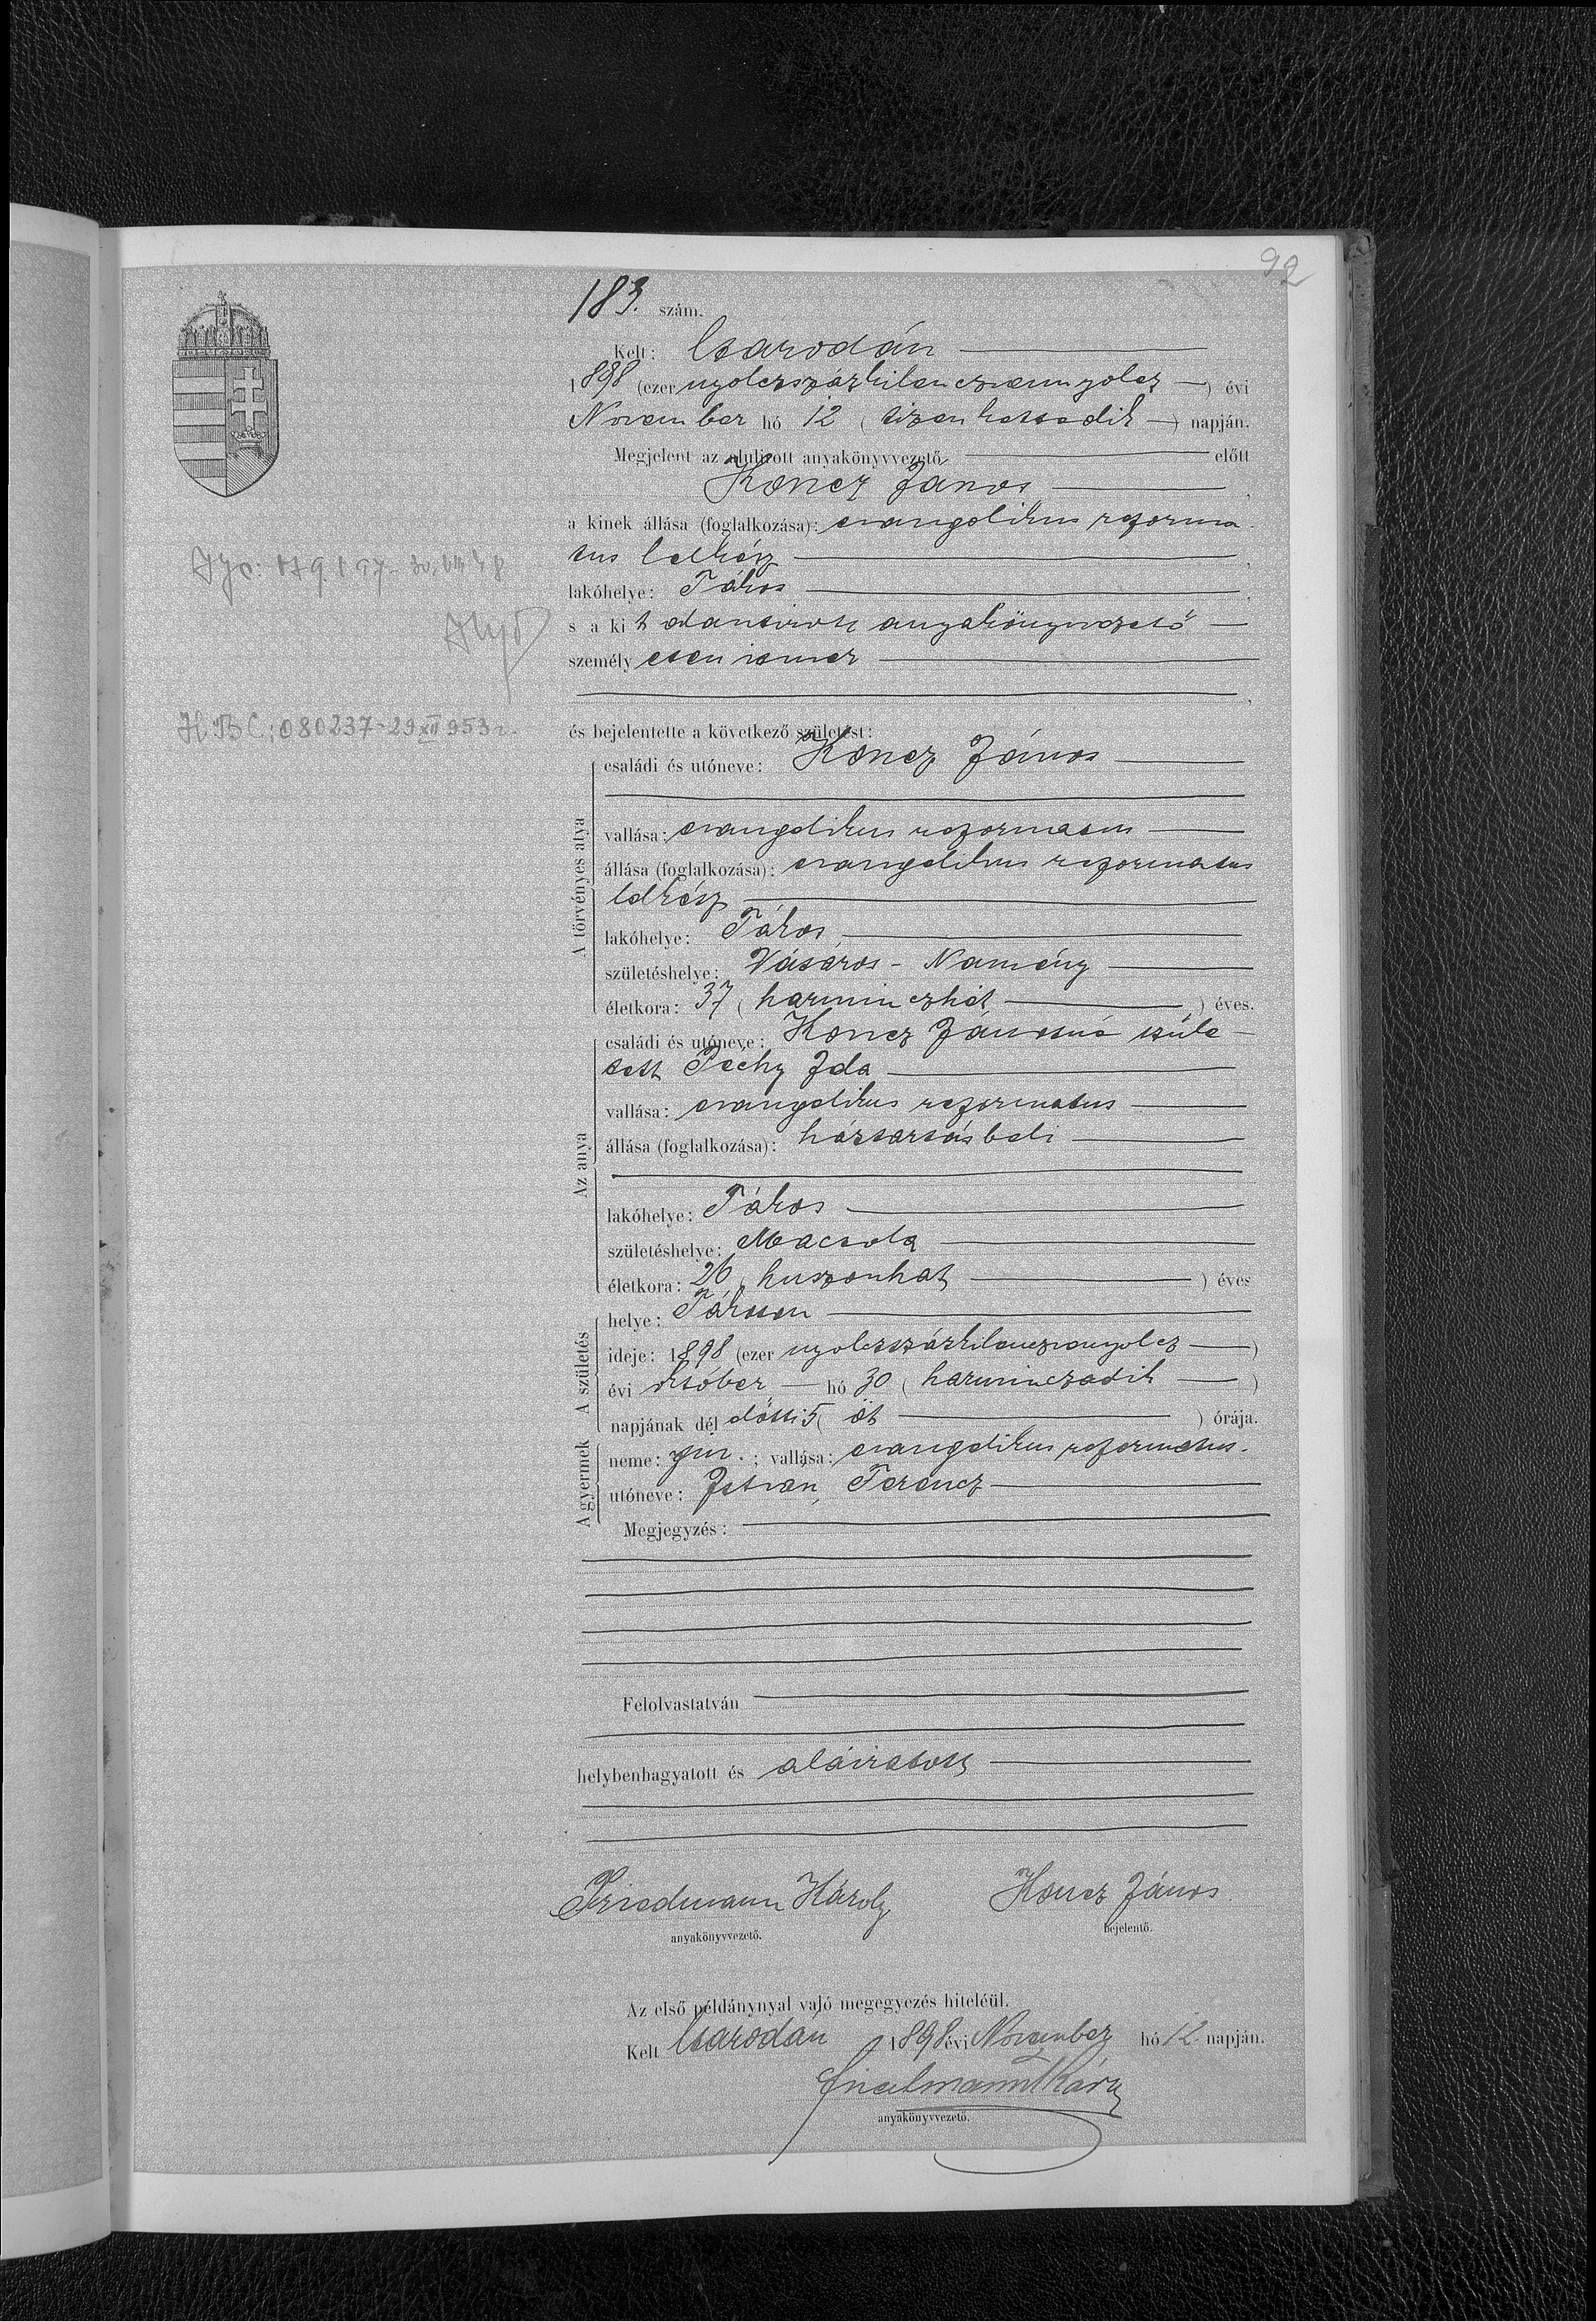 92
183. szám.
Kelt: Csarodán
1898 (ezer nyolczszázkilenczvennyolcz) évi
November hó 12 (tizenkettedik) napján.
Megjelent az alulirott anyakönyvvezető előtt
Koncz János,
a kinek állása (foglalkozása): evangelikus reforma-
tus lelkész,
lakóhelye: Tákos,
s a kit alantirott anyakönyvvezető
személyesen ismer
és bejelentette a következő születést:
A törvényes atya
családi és utóneve: Koncz János
vallása: evangelikus reformatus
állása (foglalkozása): evangelikus reformatus
lelkész
lakóhelye: Tákos
születéshelye: Vásáros-Namény
életkora: 37 (harminczhét) éves.
Az anya
családi és utóneve: Koncz Jánosné szüle-
tett Péchy Ida
vallása: evangelikus reformatus
állása (foglalkozása): háztartásbeli
lakóhelye: Tákos
születéshelye: Macsola
életkora: 26 (huszonhat) éves
A születés
helye: Tákoson
ideje: 1898 (ezer nyolczszázkilenczvennyolcz)
évi október hó 30 (harminczadik)
napjának dél előtti 5 (öt) órája.
A gyermek
neme: fiu.; vallása: evangelikus reformatus.
utóneve: István, Ferencz
Megjegyzés:
Felolvastatván
helybenhagyatott és aláiratott
Friedmann Károly Koncz János
anyakönyvvezető. bejelentő.
Az első példánynyal való megegyezés hiteléül.
Kelt Csarodán 1898 évi November hó 12 napján.
Friedmann Károly
anyakönyvvezető.
H.B.C: 080237-29 XII 953